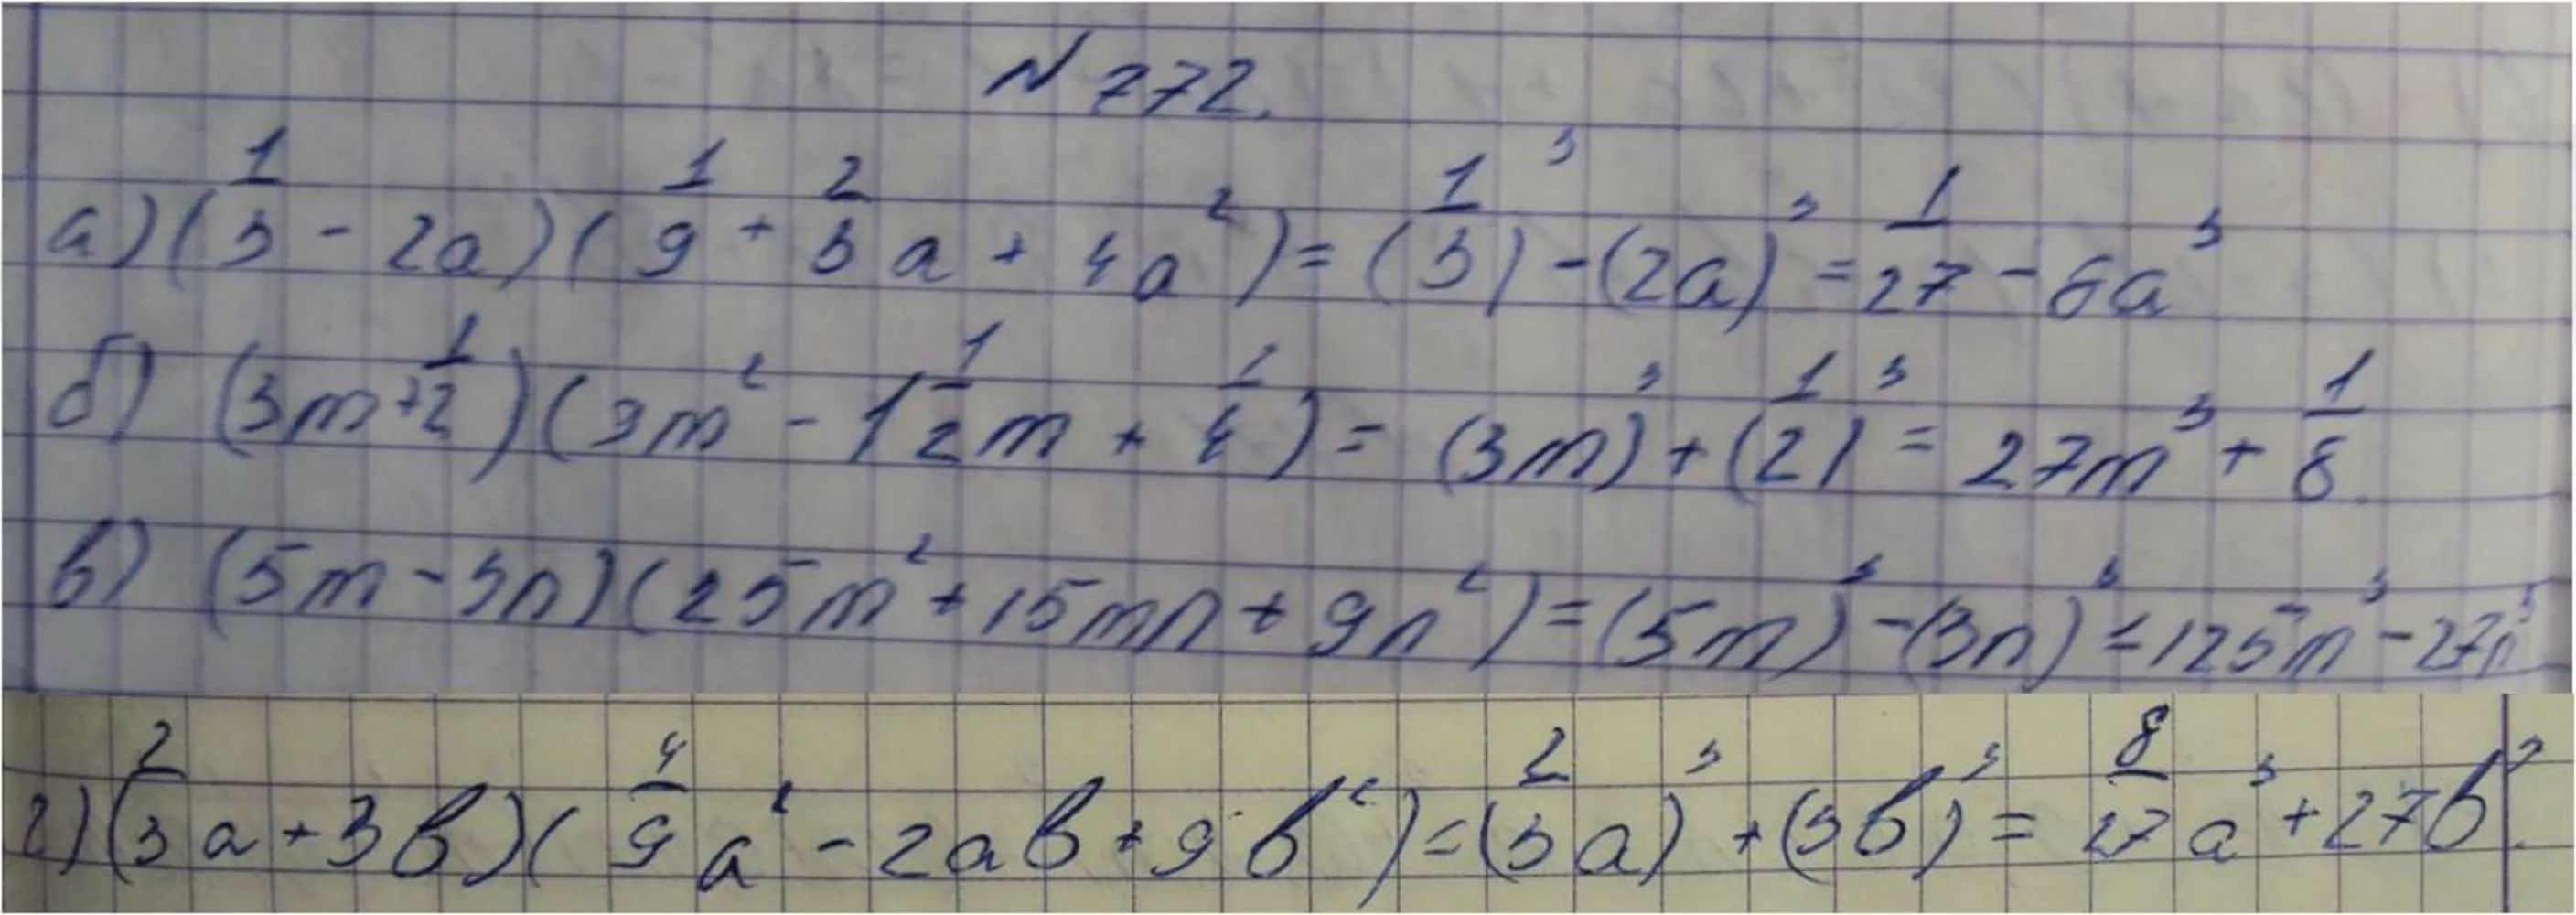 N 772.
а) (1/3 - 2a)(1/9 + 2/3 a + 4a²) = (1/3)³ - (2a)³ = 1/27 - 8a³
б) (3m + 1/2)(9m² - 1 1/2 m + 1/4) = (3m)³ + (1/2)³ = 27m³ + 1/8
в) (5m - 3n)(25m² + 15mn + 9n²) = (5m)³ - (3n)³ = 125m³ - 27n³
г) (2/3 a + 3b)(4/9 a² - 2ab + 9b²) = (2/3 a)³ + (3b)³ = 8/27 a³ + 27b³.